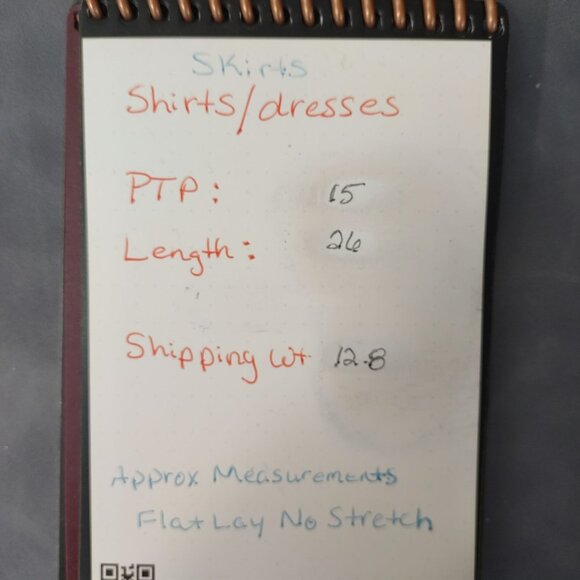 Skirts
Shirts/dresses
PTP: 15
Length: 26
Shipping Wt 12.8
Approx Measurements
Flat Lay No Stretch